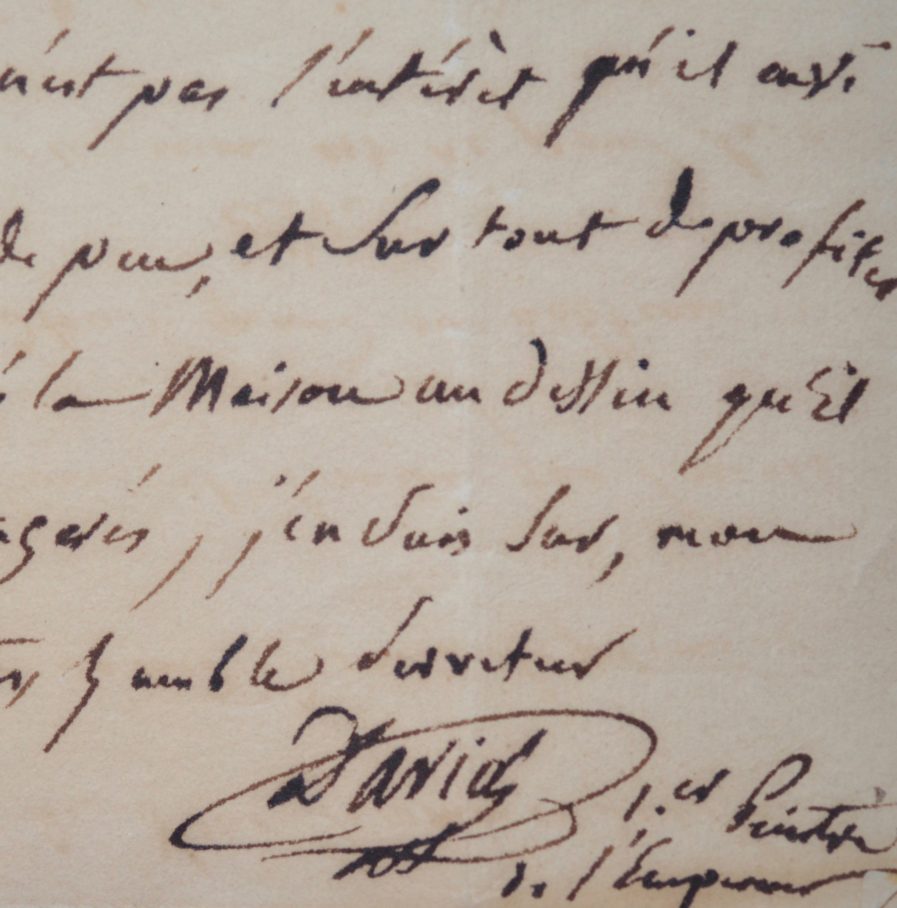 n'est pas l'intérêt qu'il
de peur, et sur tout de profiter
la Maison un dessin qu'il
j'en suis sur, mon
humble serviteur
David 1.er Peintre
de l'Empereur